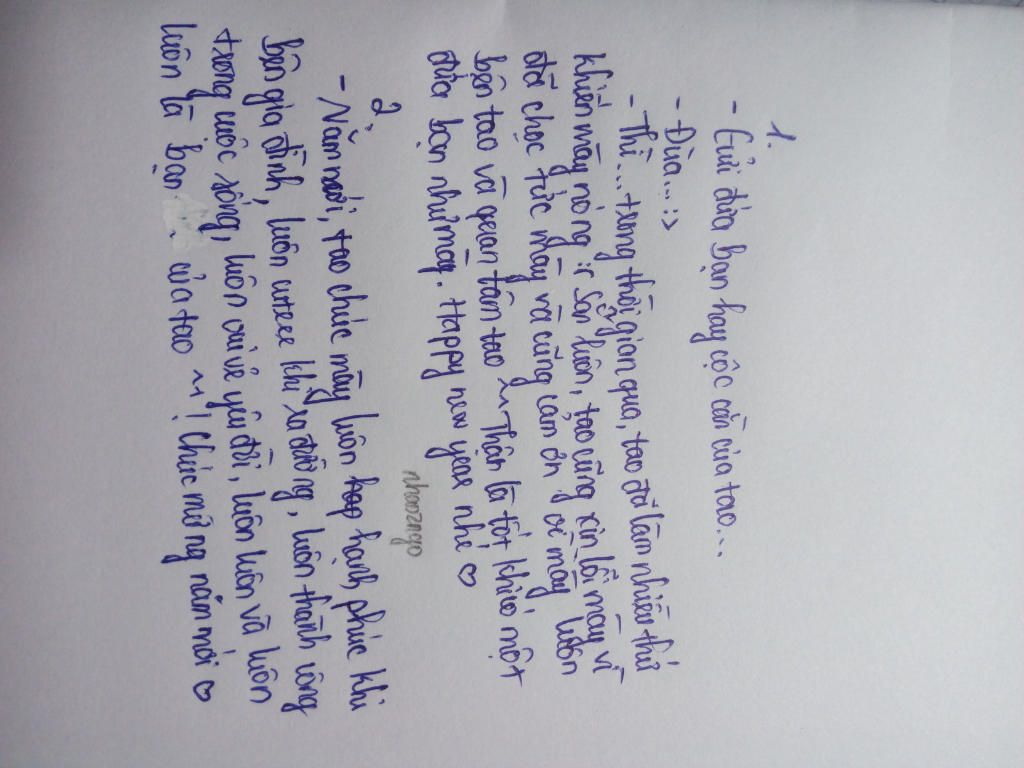 1.
- Gửi đứa bạn hay cộc cằn của tao...
- Đùa... :>
- Thì... trong thời gian qua, tao đã làm nhiều thứ
khiến mày nóng ir sẵn luôn, tao cũng xin lỗi mày vì
đã chọc tức mày và cũng cam ơn vì mày luôn
bên tao và quan tâm tao ~ Thật là tốt khi có một
đứa bạn như mày. Happy new year nhé ♡
nhaozngo
2.
- Năm mới, tao chúc mày luôn hạnh phúc khi
bên gia đình, luôn cuteee khi ra đường, luôn thành công
trong cuộc sống, luôn vui vẻ yêu đời, luôn luôn và luôn
luôn là bạn của tao ~! Chúc mừng năm mới ♡